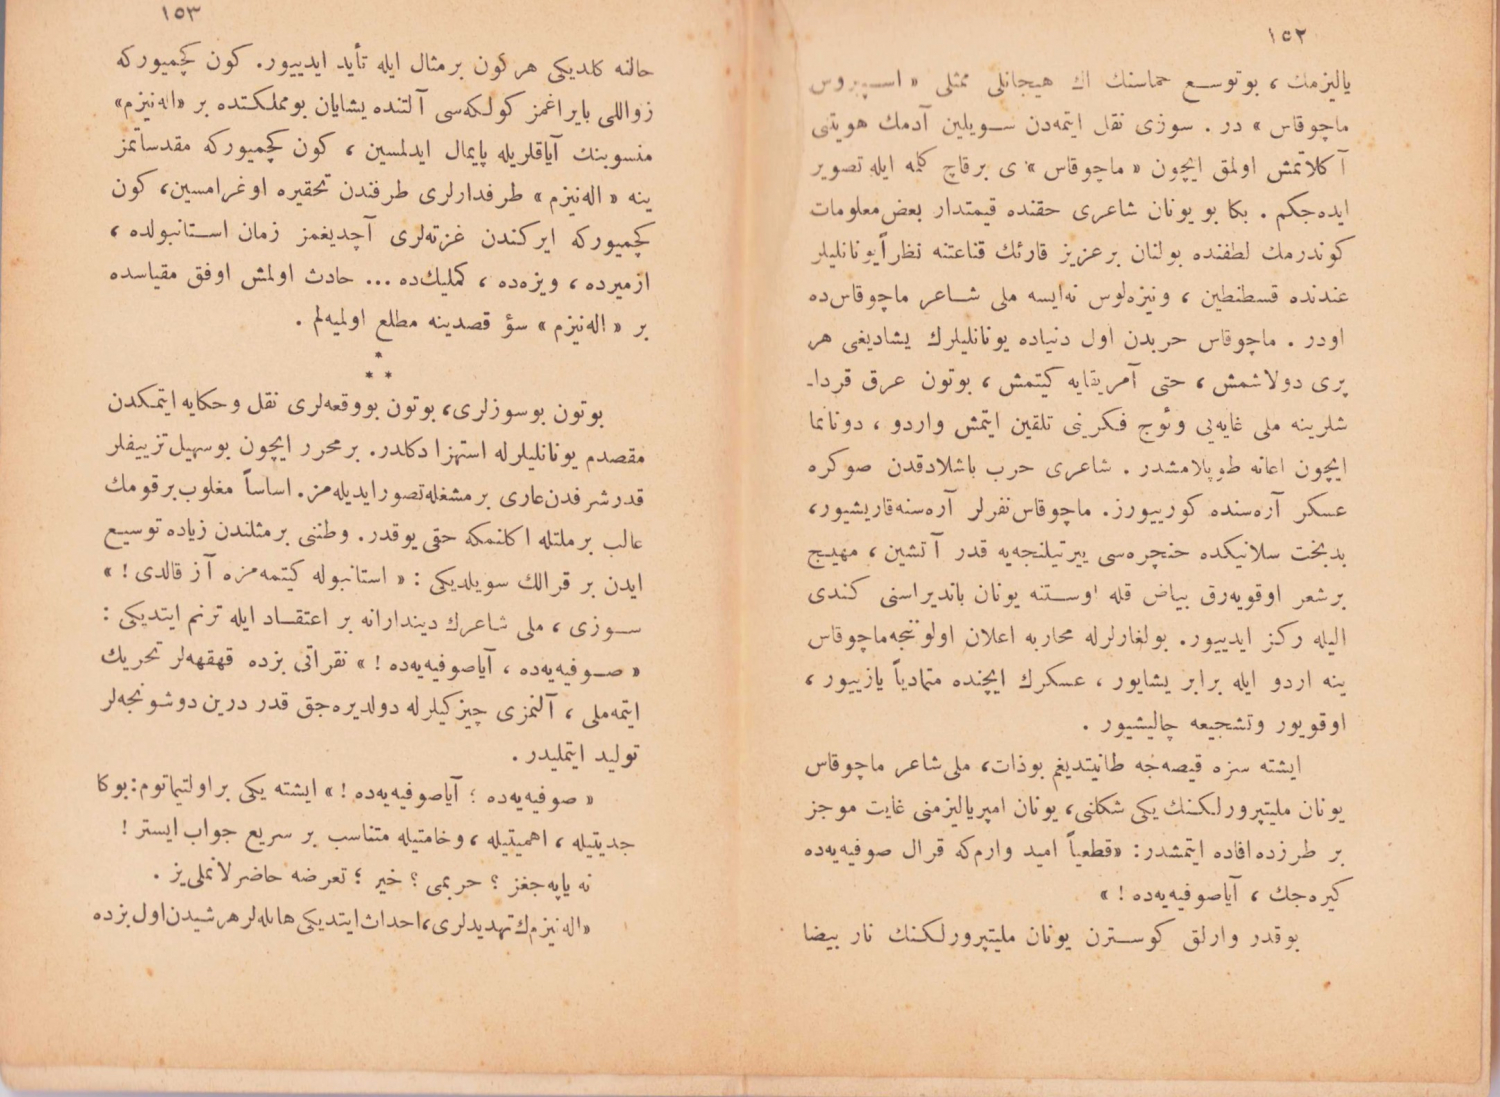 ١٥٢
ياليزمك ، بوتوسع حماسنك اك هيجانلى ممثلى « اسپيروس
ماچوقاس » در . سوزى نقل ايتمه‌دن سويلين آدمك هويتنى
آكلاتمش اولمق ايچون « ماچوقاس » ى برقاچ كلمه ايله تصوير
ايده‌جكم . بكا بو يونان شاعرى حقنده قيمتدار بعض معلومات
كوندرمك لطفنده بولنان برعزيز قارئك قناعتنه نظراً يونانليلر
عندنده قسطنطين ، ونيزه‌لوس نه‌ايسه ملى شاعر ماچوقاس‌ده
اودر . ماچوقاس حربدن اول دنياده يونانليلرك يشاديغى هر
يرى دولاشمش ، حتى آمريقايه كيتمش ، بوتون عرق قردا-
شلرينه ملى غايه‌يى وئوج فكرينى تلقين ايتمش واردو ، دونانما
ايچون اعانه طوپلامشدر . شاعرى حرب باشلادقدن صوكره
عسكر آره‌سنده كورييورز. ماچوقاس نفرلر آره‌سنه قاريشيور،
بدبخت سلانيكده حنجره‌سى ييرتيلنجه‌يه قدر آتشين ، مهيج
برشعر اوقويه‌رق بياض قله اوستنه يونان بانديراسنى كندى
اليله ركز ايدييور. بولغارلرله محاربه اعلان اولونجه ماچوقاس
ينه اردو ايله برابر يشايور ، عسكرك ايچنده متمادياً يازييور ،
اوقويور وتشجيعه چاليشيور .
ايشته سزه قيصه‌جه طانيتديغم بوذات، ملى شاعر ماچوقاس
يونان مليتپرورلكنك يكى شكلنى، يونان امپرياليزمنى غايت موجز
بر طرزده افاده ايتمشدر: «قطعياً اميد وارم كه قرال صوفيه‌يه‌ده
كيره‌جك ، آياصوفيه‌يه‌ده ! »
بوقدر وارلق كوسترن يونان مليتپرورلكنك نار بيضا
١٥٣
حالنه كلديكى هركون برمثال ايله تأيد ايدييور. كون كچميوركه
زواللى بايراغمز كولكه‌سى آلتنده يشايان بومملكتده بر «اله‌نيزم»
منسوبنك آياقلريله پايمال ايدلمسين ، كون كچميوركه مقدساتمز
ينه « اله‌نيزم » طرفدارلرى طرفندن تحقيره اوغرامسين، كون
كچميوركه ايركندن غزته‌لرى آچديغمز زمان استانبولده ،
ازميرده ، ويزه‌ده ، كمليك‌ده ... حادث اولمش اوفق مقياسده
بر « اله‌نيزم » سؤ قصدينه مطلع اولميه‌لم .
* * *
بوتون بوسوزلرى، بوتون بووقعه‌لرى نقل وحكايه ايتمكدن
مقصدم يونانليلرله استهزا دكلدر. برمحرر ايچون بوسهيل تزييفلر
قدر شرفدن عارى بر مشغله تصور ايديله‌مز. اساساً مغلوب برقومك
غالب برملتله اكلنمكه حقى يوقدر. وطننى برمثلندن زياده توسيع
ايدن بر قرالك سويلديكى : « استانبوله كيتمه‌مزه آز قالدى ! »
سوزى ، ملى شاعرك ديندارانه بر اعتقاد ايله ترنم ايتديكى :
« صوفيه‌يه‌ده ، آياصوفيه‌يه‌ده ! » نقراتى بزده قهقهه‌لر تحريك
ايتمه‌ملى ، آلنمزى چيزكيلرله دولديره‌جق قدر درين دوشونجه‌لر
توليد ايتمليدر .
« صوفيه‌يه‌ده ؛ آياصوفيه‌يه‌ده ! » ايشته يكى براولتيماتوم: بوكا
جديتيله ، اهميتيله ، وخامتيله متناسب بر سريع جواب ايستر !
نه ياپه‌جغز ؟ حربمى ؟ خير ؛ تعرضه حاضرلانملى‌يز .
«اله‌نيزم‌ك تهديدلرى، احداث ايتديكى هائله‌لر هرشيدن اول بزده